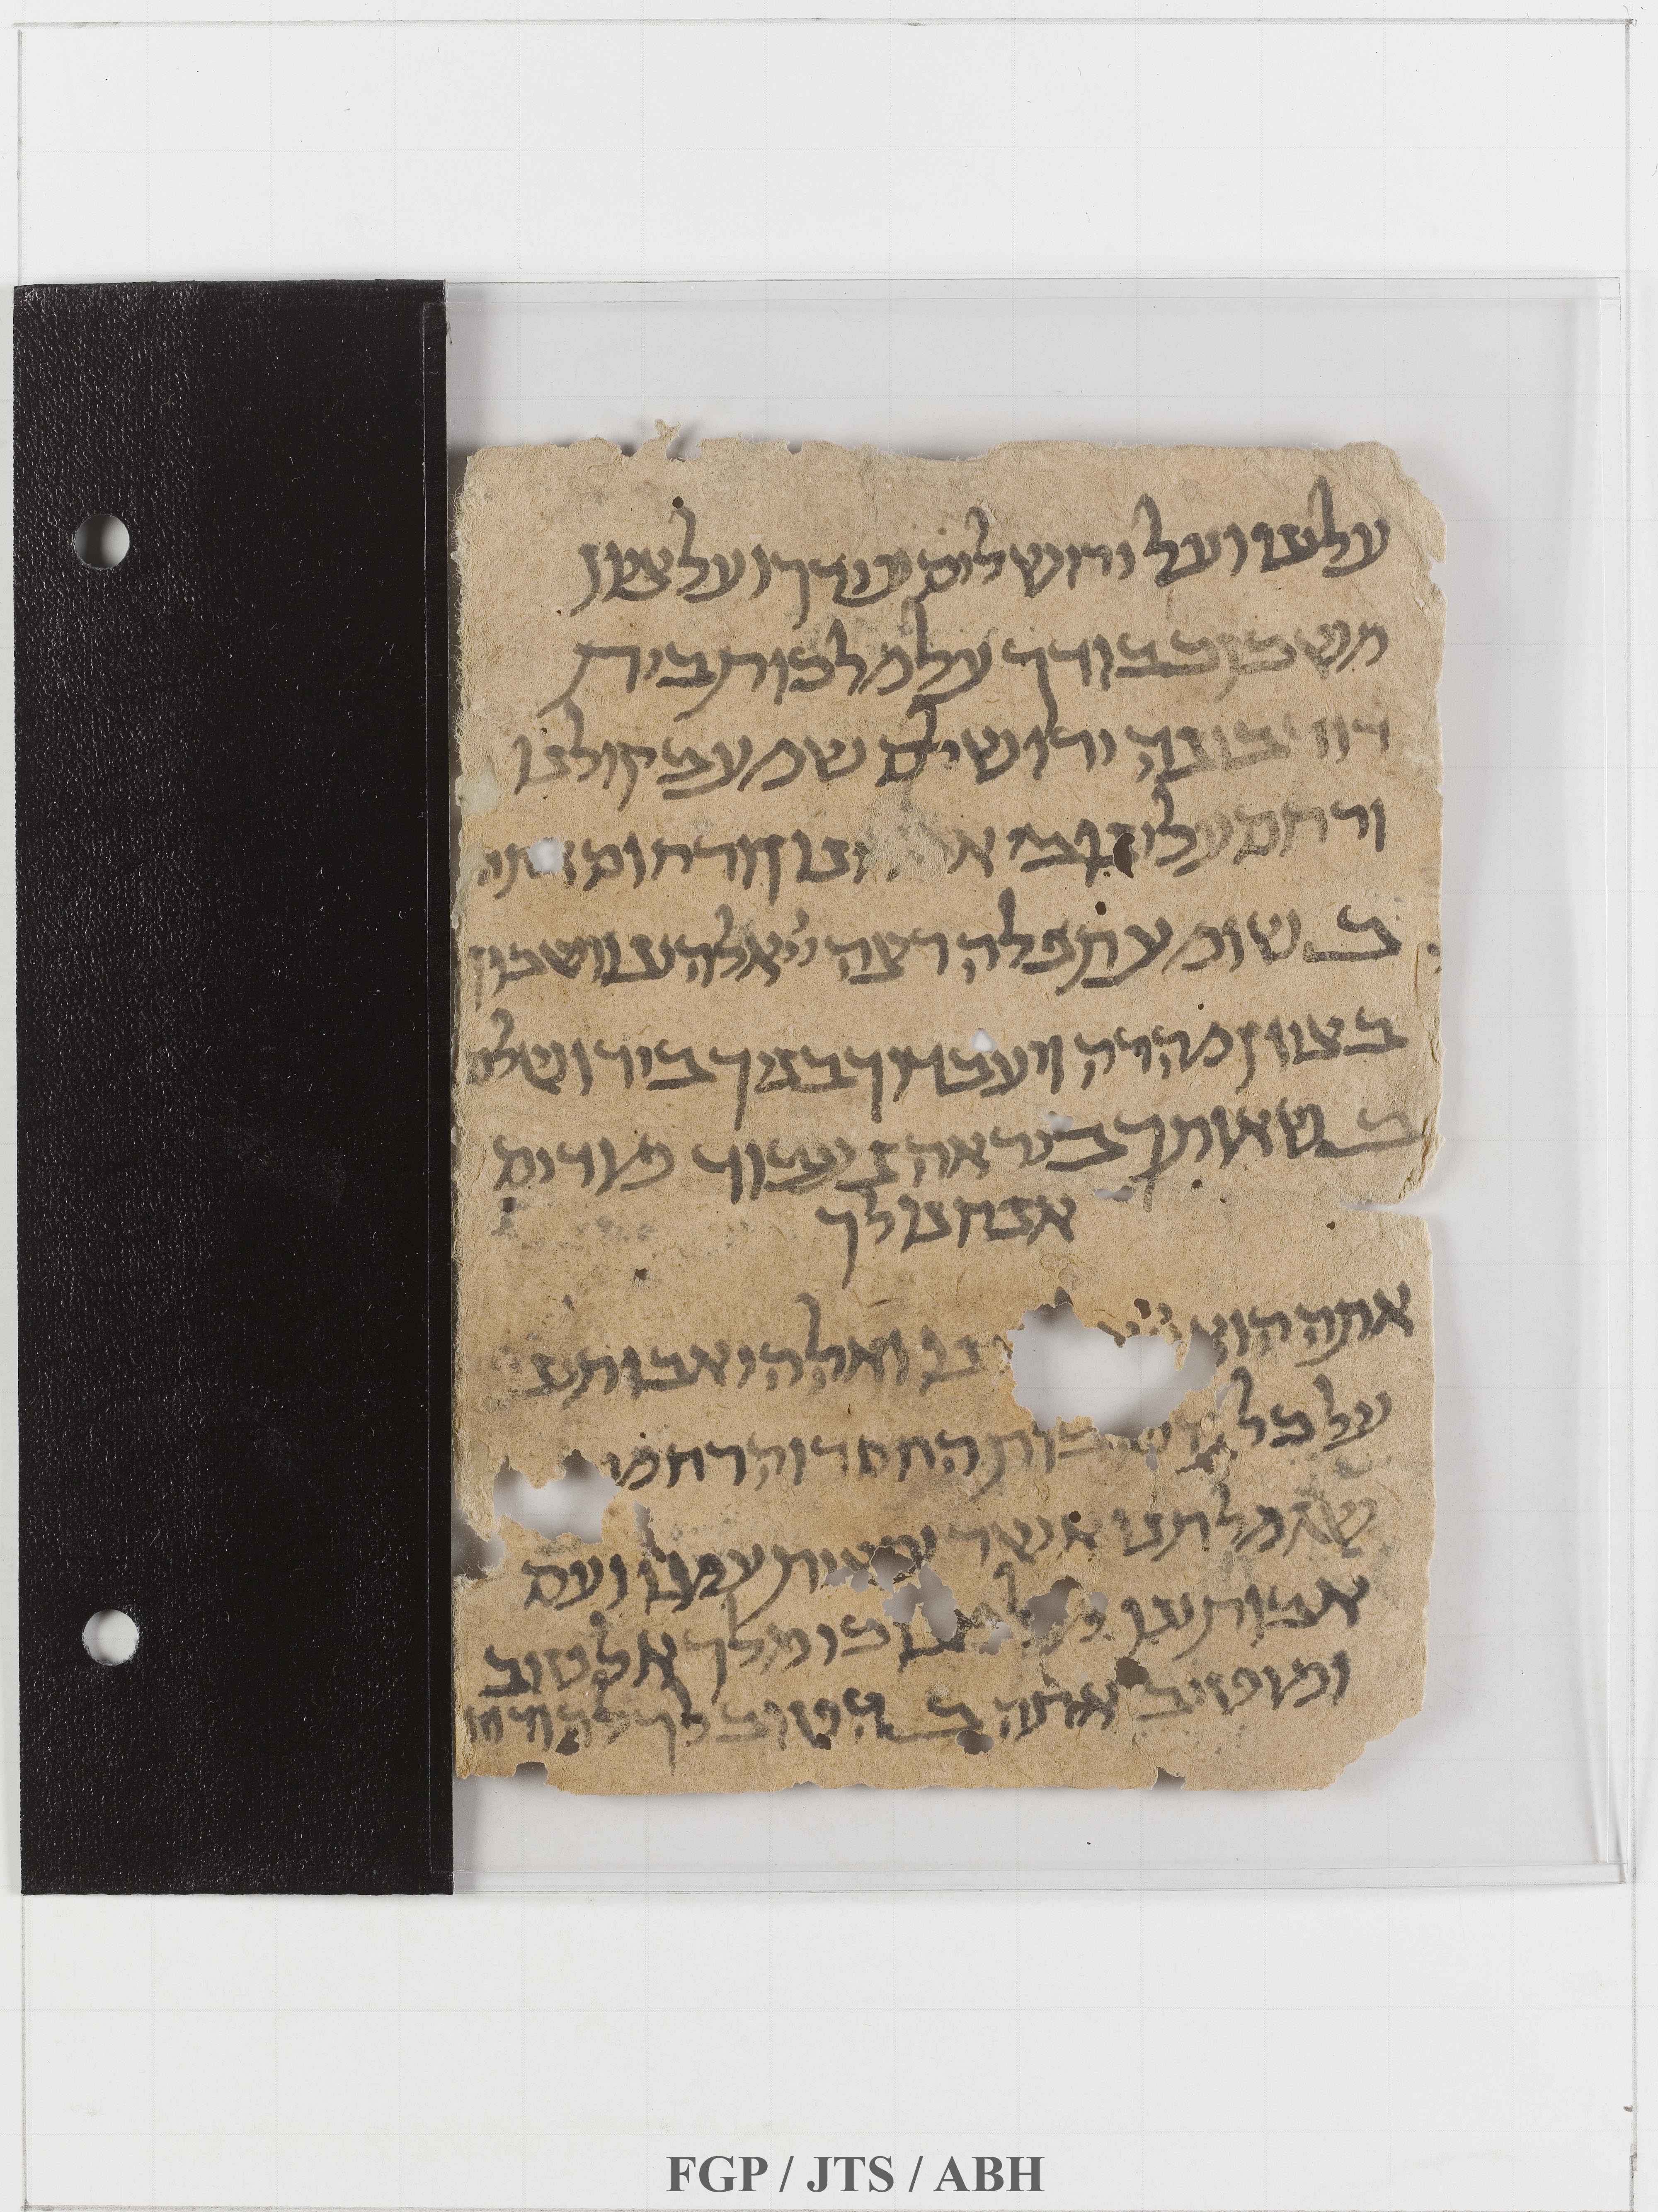 עלינו ועל ירושלים עירך ועל ציון
משכן כבודך על מלכות בית
דויד בונה ירושלים שמע בקולנו
ורחם עלינו כי חנון ורחום אתה
ב שומע תפלה רצה ייי אלהינו ושכון
בציון מהרה ויעבדוך בניך בירושלם
ב שאותך ביראה נעבוד מודים
אנחנו לך
אתה הוא ואלהי אבותינו
על כל הטובות החסד והרחמים
שגמלתנו אשר עשית עמנו ועם
אבותינו כו מלך אל טוב
ומטיב אתה ב הטוב לך להודות
FGP / JTS / ABH